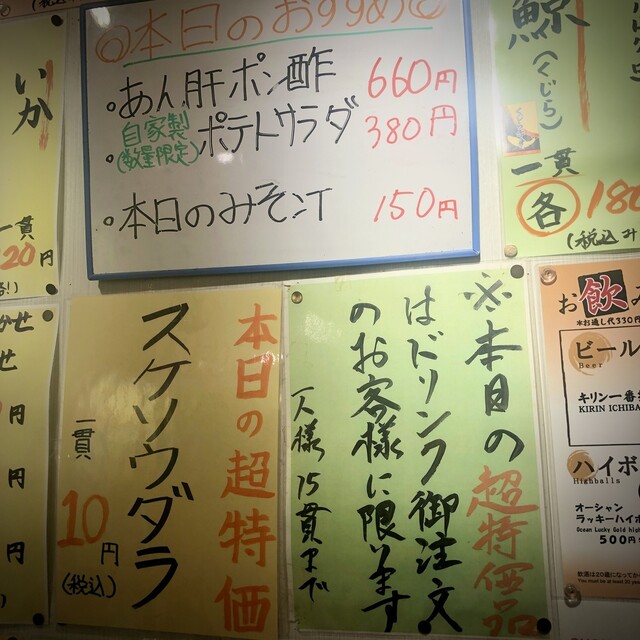 ◎本日のおすすめ◎
・あん肝ポン酢 660円
・自家製(数量限定)ポテトサラダ 380円
・本日のみそ汁 150円
いか
一貫
20円
鯨(くじら)
一貫
各180
(税込み
本日の超特価
スケソウダラ
一貫
10円
(税込)
※本日の超特価品
はドリンク御注文
のお客様に限ります
一人様15貫まで
かせ
せ
円
円
円
お飲み
*お通し代330円
ビール
Beer
キリン一番搾
KIRIN ICHIBA
ハイボ
Highballs
オーシャン
ラッキーハイボ
Ocean Lucky Gold high
500円
飲酒は20歳になってか